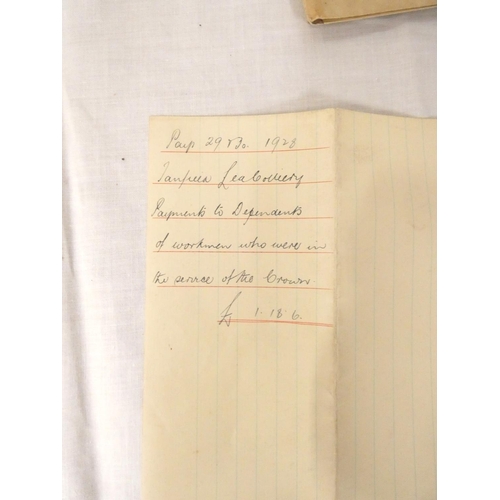 Pay 29 1928
Tanfield Lea Colliery
Payments to Dependents
of workmen who were in
the service of the Crown
£ 1.18.6.